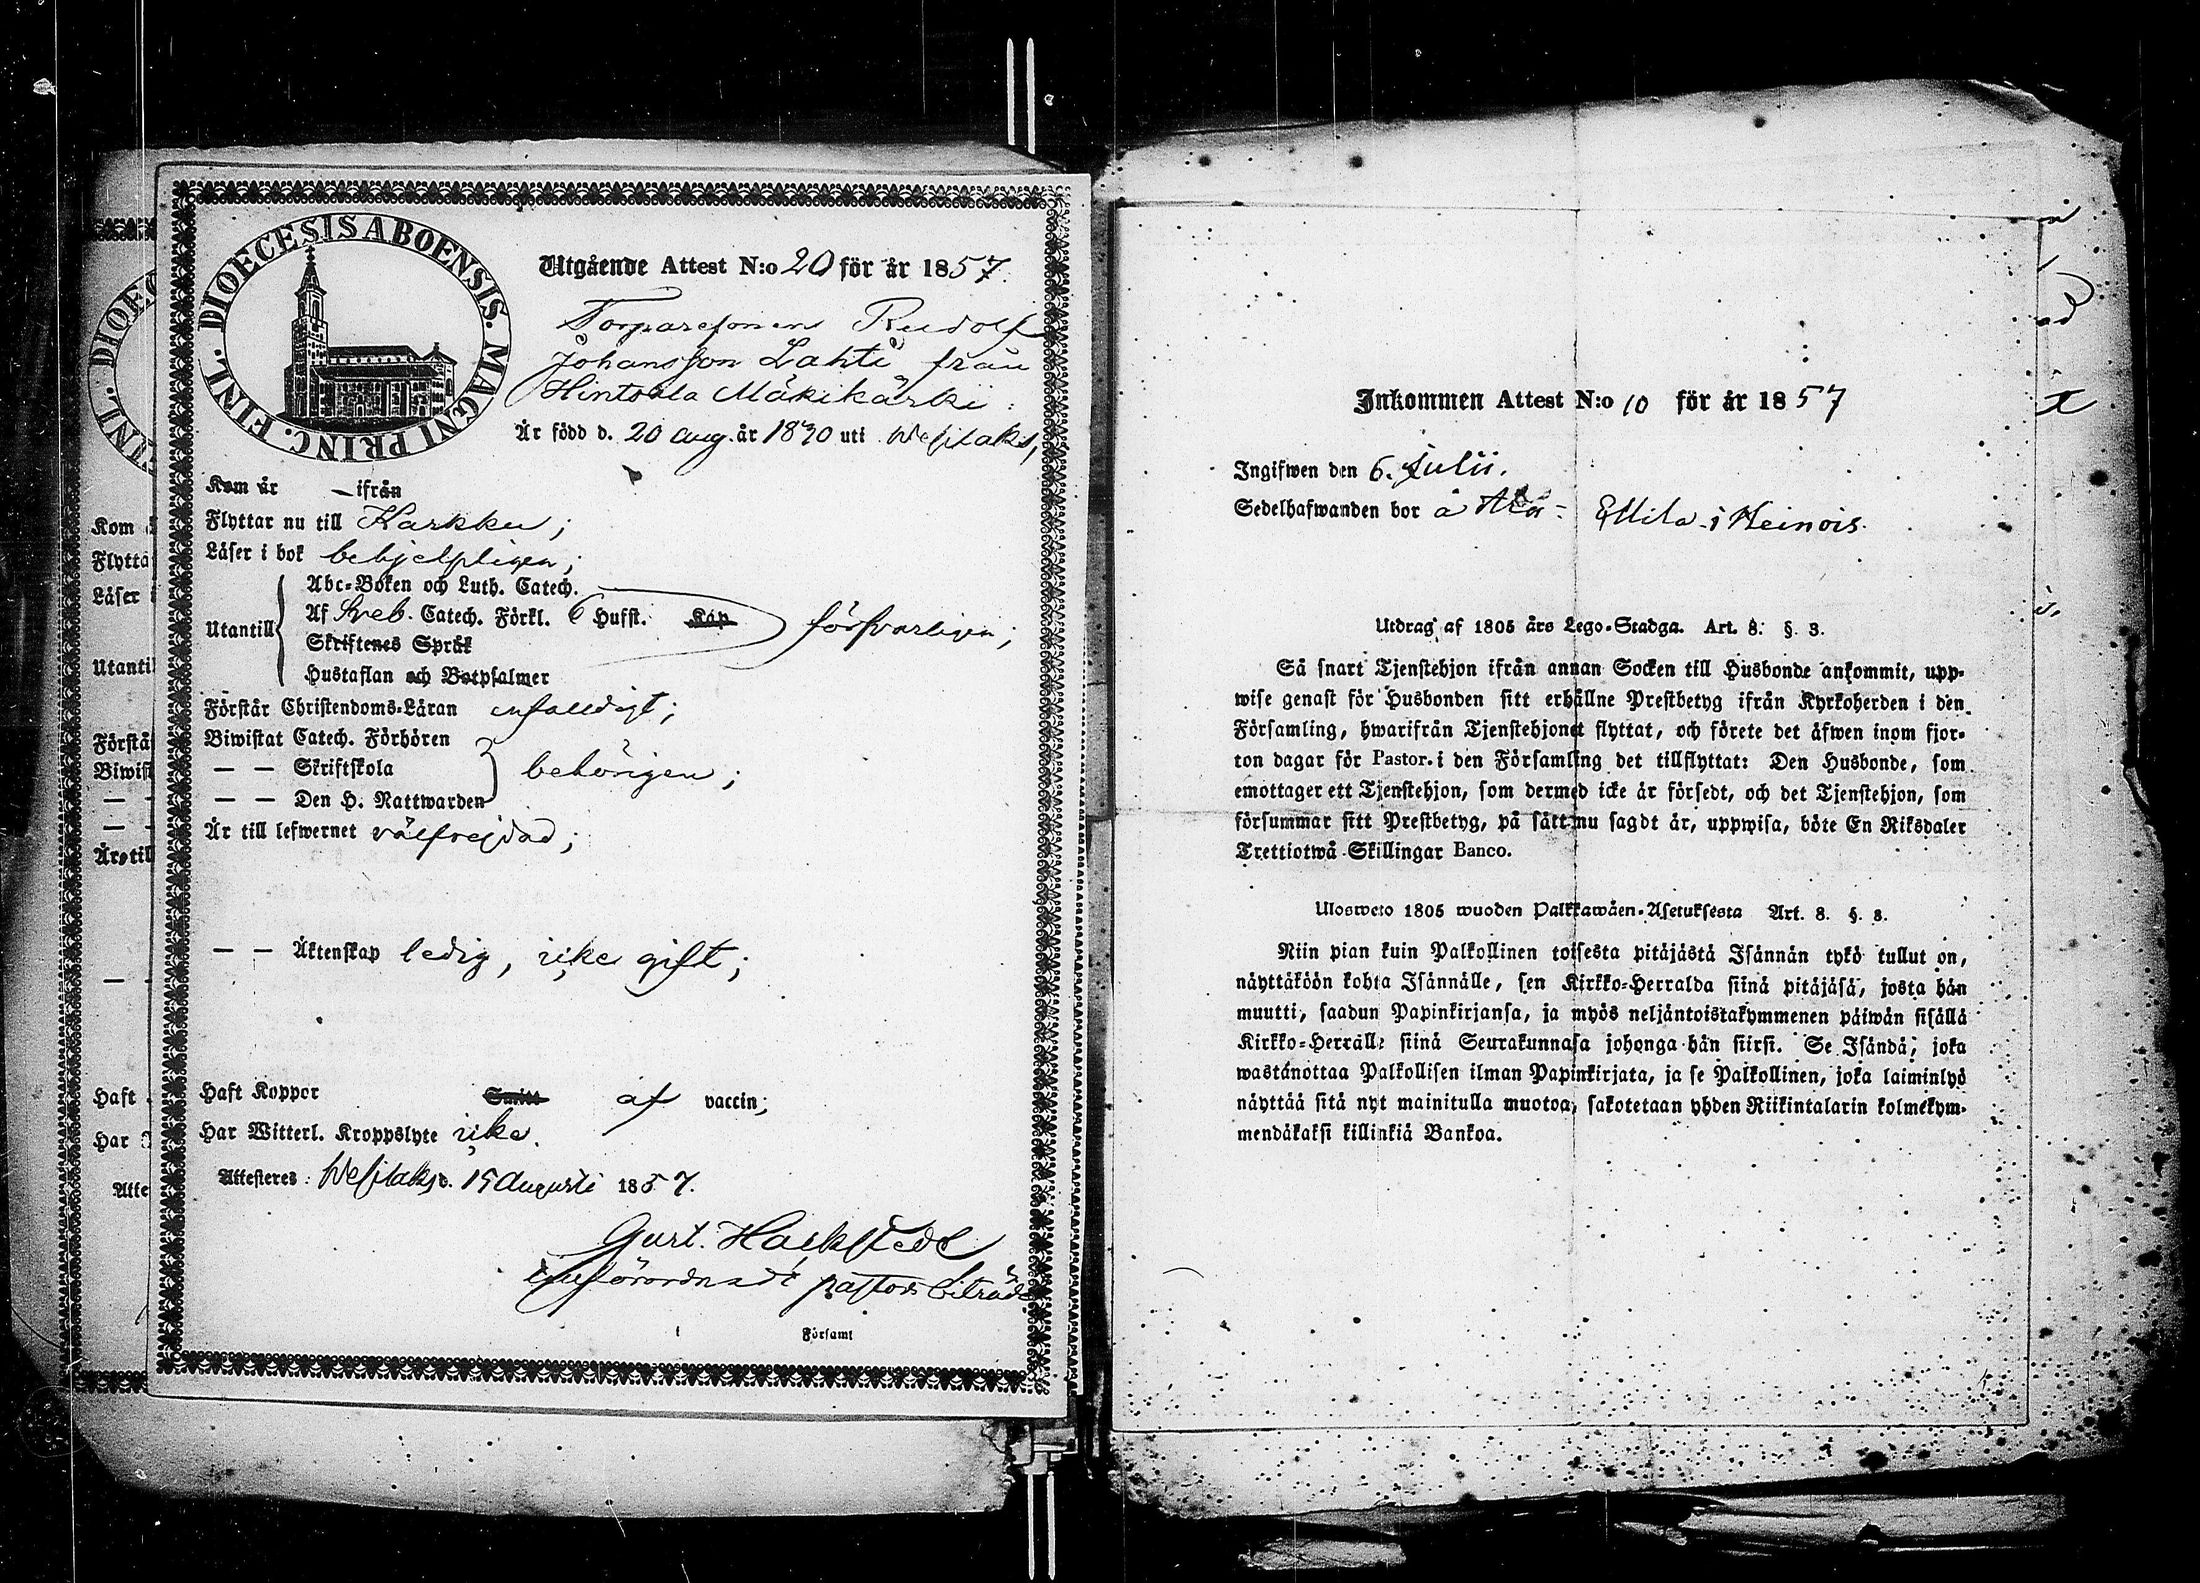 DIOECESIS ABOENSIS. MAGNI PRINC. FINL.
Utgående Attest N:o 20 för år 1857.
Torparesonen Rudolf
Johansson Lahti från
Hintsala Mäkikärki
Är född d. 20 Aug. år 1830 uti Wesilaks,
Kom år — ifrån
Flyttar nu till Karkku;
Läser i bok behjelpligen;
Abc-Boken och Luth. Catech.
Utantill Af Sveb. Catech. Förkl. 6 Hufst. Kap försvarligen;
Skriftenes Språk
Hustaflan och Botpsalmer
Förstår Christendoms-Läran enfaldigt;
Biwistat Catech. Förhören
— — Skriftskola behörigen;
— — Den H. Nattwarden
Är till lefwernet välfrejdad;
— — Äktenskap ledig, icke gift;
Haft Koppor Smitt af vaccin;
Har Witterl. Kroppslyte icke.
Attesteras: Wesilaks d. 15 Augusti 1857.
Gust.
förordnadt pastors biträde
Församl
DIOE
FINL.
Kom
Flytta
Läser
Utantil
Förstå
Biwist
— -
— -
Är till
— -
Haft
Har
Atte
Inkommen Attest N:o 10 för år 1857
Ingifwen den 6. Julii.
Sedelhafwanden bor å Ellilä i Heinois.
Utdrag af 1805 års Lego-Stadga. Art. 8. §. 3.
Så snart Tjenstehjon ifrån annan Socken till Husbonde ankommit, upp-
wise genast för Husbonden sitt erhållne Prestbetyg ifrån Kyrkoherden i den
Församling, hwarifrån Tjenstehjonet flyttat, och förete det äfwen inom fjor-
ton dagar för Pastor i den Församling det tillflyttat: Den Husbonde, som
emottager ett Tjenstehjon, som dermed icke är försedt, och det Tjenstehjon, som
försummar sitt Prestbetyg, på sätt nu sagdt är, uppwisa, böte En Riksdaler
Trettiotwå Skillingar Banco.
Ulosweto 1805 wuoden Palkkawäen-Asetuksesta Art. 8. §. 3.
Niin pian kuin Palkollinen toisesta pitäjästä Isännän tykö tullut on,
näyttäköön kohta Isännälle, sen Kirkko-Herralda siinä pitäjäsä, josta hän
muutti, saadun Papinkirjansa, ja myös neljäntoistakymmenen päiwän sisällä
Kirkko-Herralle siinä Seurakunnasa johonga hän siirsi. Se Isändä, joka
wastanottaa Palkollisen ilman Papinkirjata, ja se Palkollinen, joka laiminlyö
näyttää sitä nyt mainitulla muotoa, sakotetaan yhden Riikintalarin kolmekym-
mendäkaksi killinkiä Bankoa.